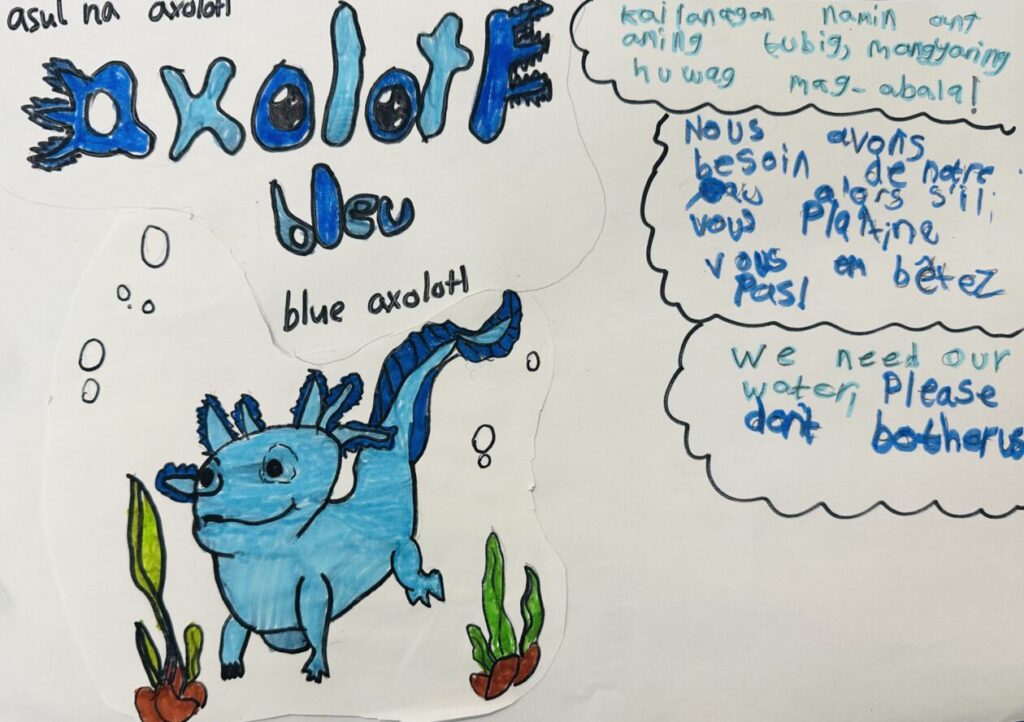 asul na axolotl
axolotE
bleu
blue axolotl
kailanagan namin ant
aning tubig, mangyaring
huwag mag-abala!
Nous avons
besoin de notre
eau alors s'il
vous plaîtine
vous em bêtez
Pas!
We need our
water, Please
don't botherus